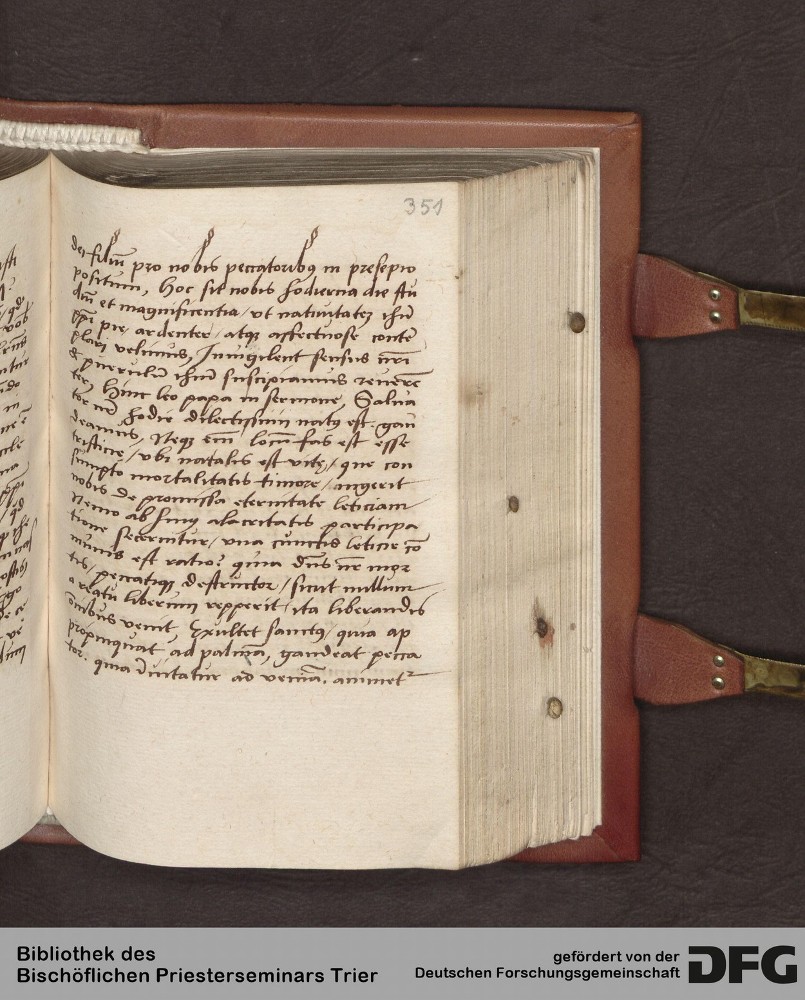 351
dei filiū pro nobis peccatoribꝯ in presepio
positum, Hoc sit nobis hodierna die stu
diū et magnificentia / vt natiuitatez ihū
xpī pie, ardenter, atqꝫ affectuose contē
plari velimus, Inuigilent sensus nrī
& puerulū ihūm suscipiamus reuerē
ter, Hinc leo papa in sermone, Salua
tor nr̄ hodie dilectissimi natꝯ est. gau
deamus, Neqꝫ em̄ locū fas est esse
tristicie / vbi natalis est vitę / que con
sumpto mortalitatis timore / ingerit
nobis de promissa eternitate leticiam
Nemo ab huiꝯ alacritatis participa
tione secernitur / vna cūnctis leticie cō
munis est ratio? quia dn̄s nr̄ mor
tis / peccatiqꝫ destructor / sicut nullum
a reatu liberum repperit / ita liberandis
ōnibus venit, Exultet sanctꝯ / quia ap
propinquat ad palmā, gaudeat pecca
tor. quia īnuitatur ad veniā. animetr
Bibliothek des
Bischöflichen Priesterseminars Trier
gefördert von der
Deutschen Forschungsgemeinschaft
DFG